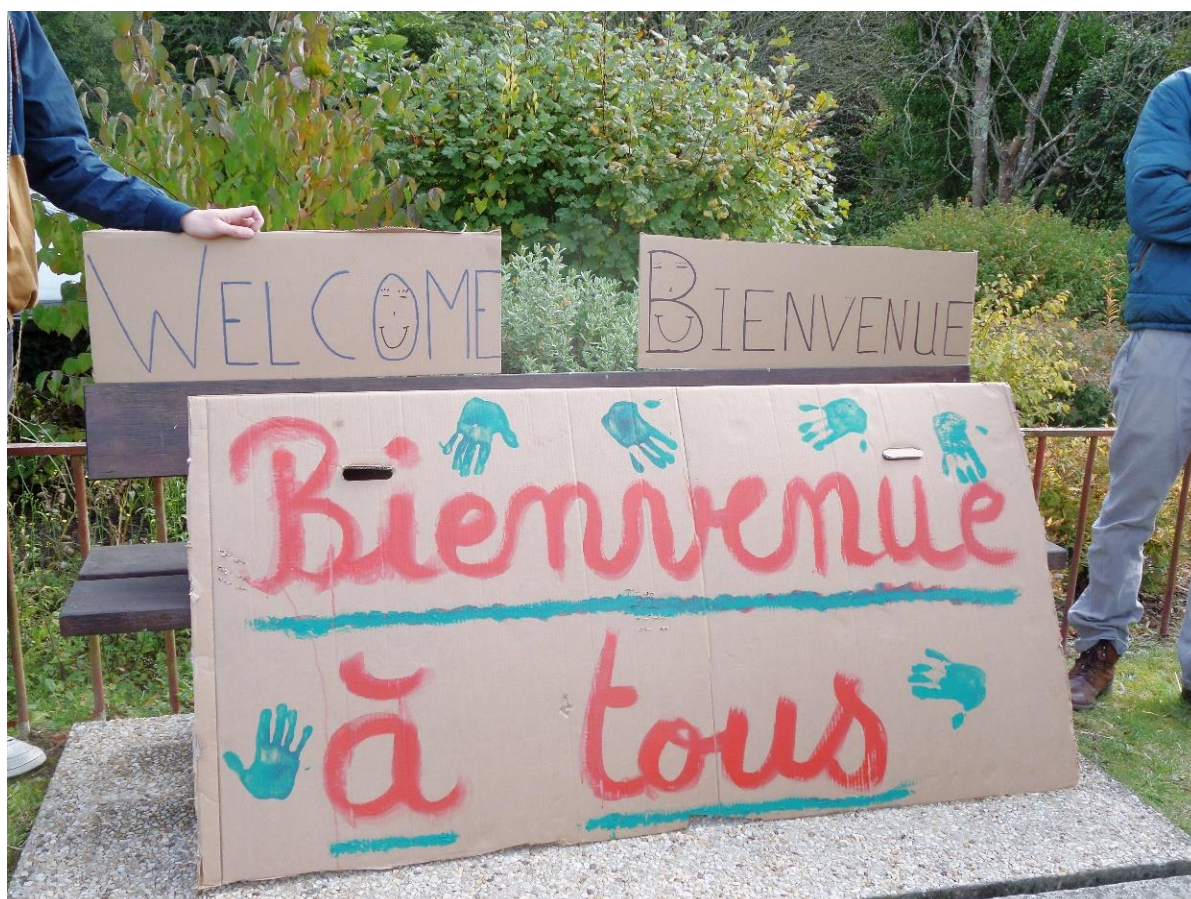 WELCOME
BIENVENUE
Bienvenue
à tous